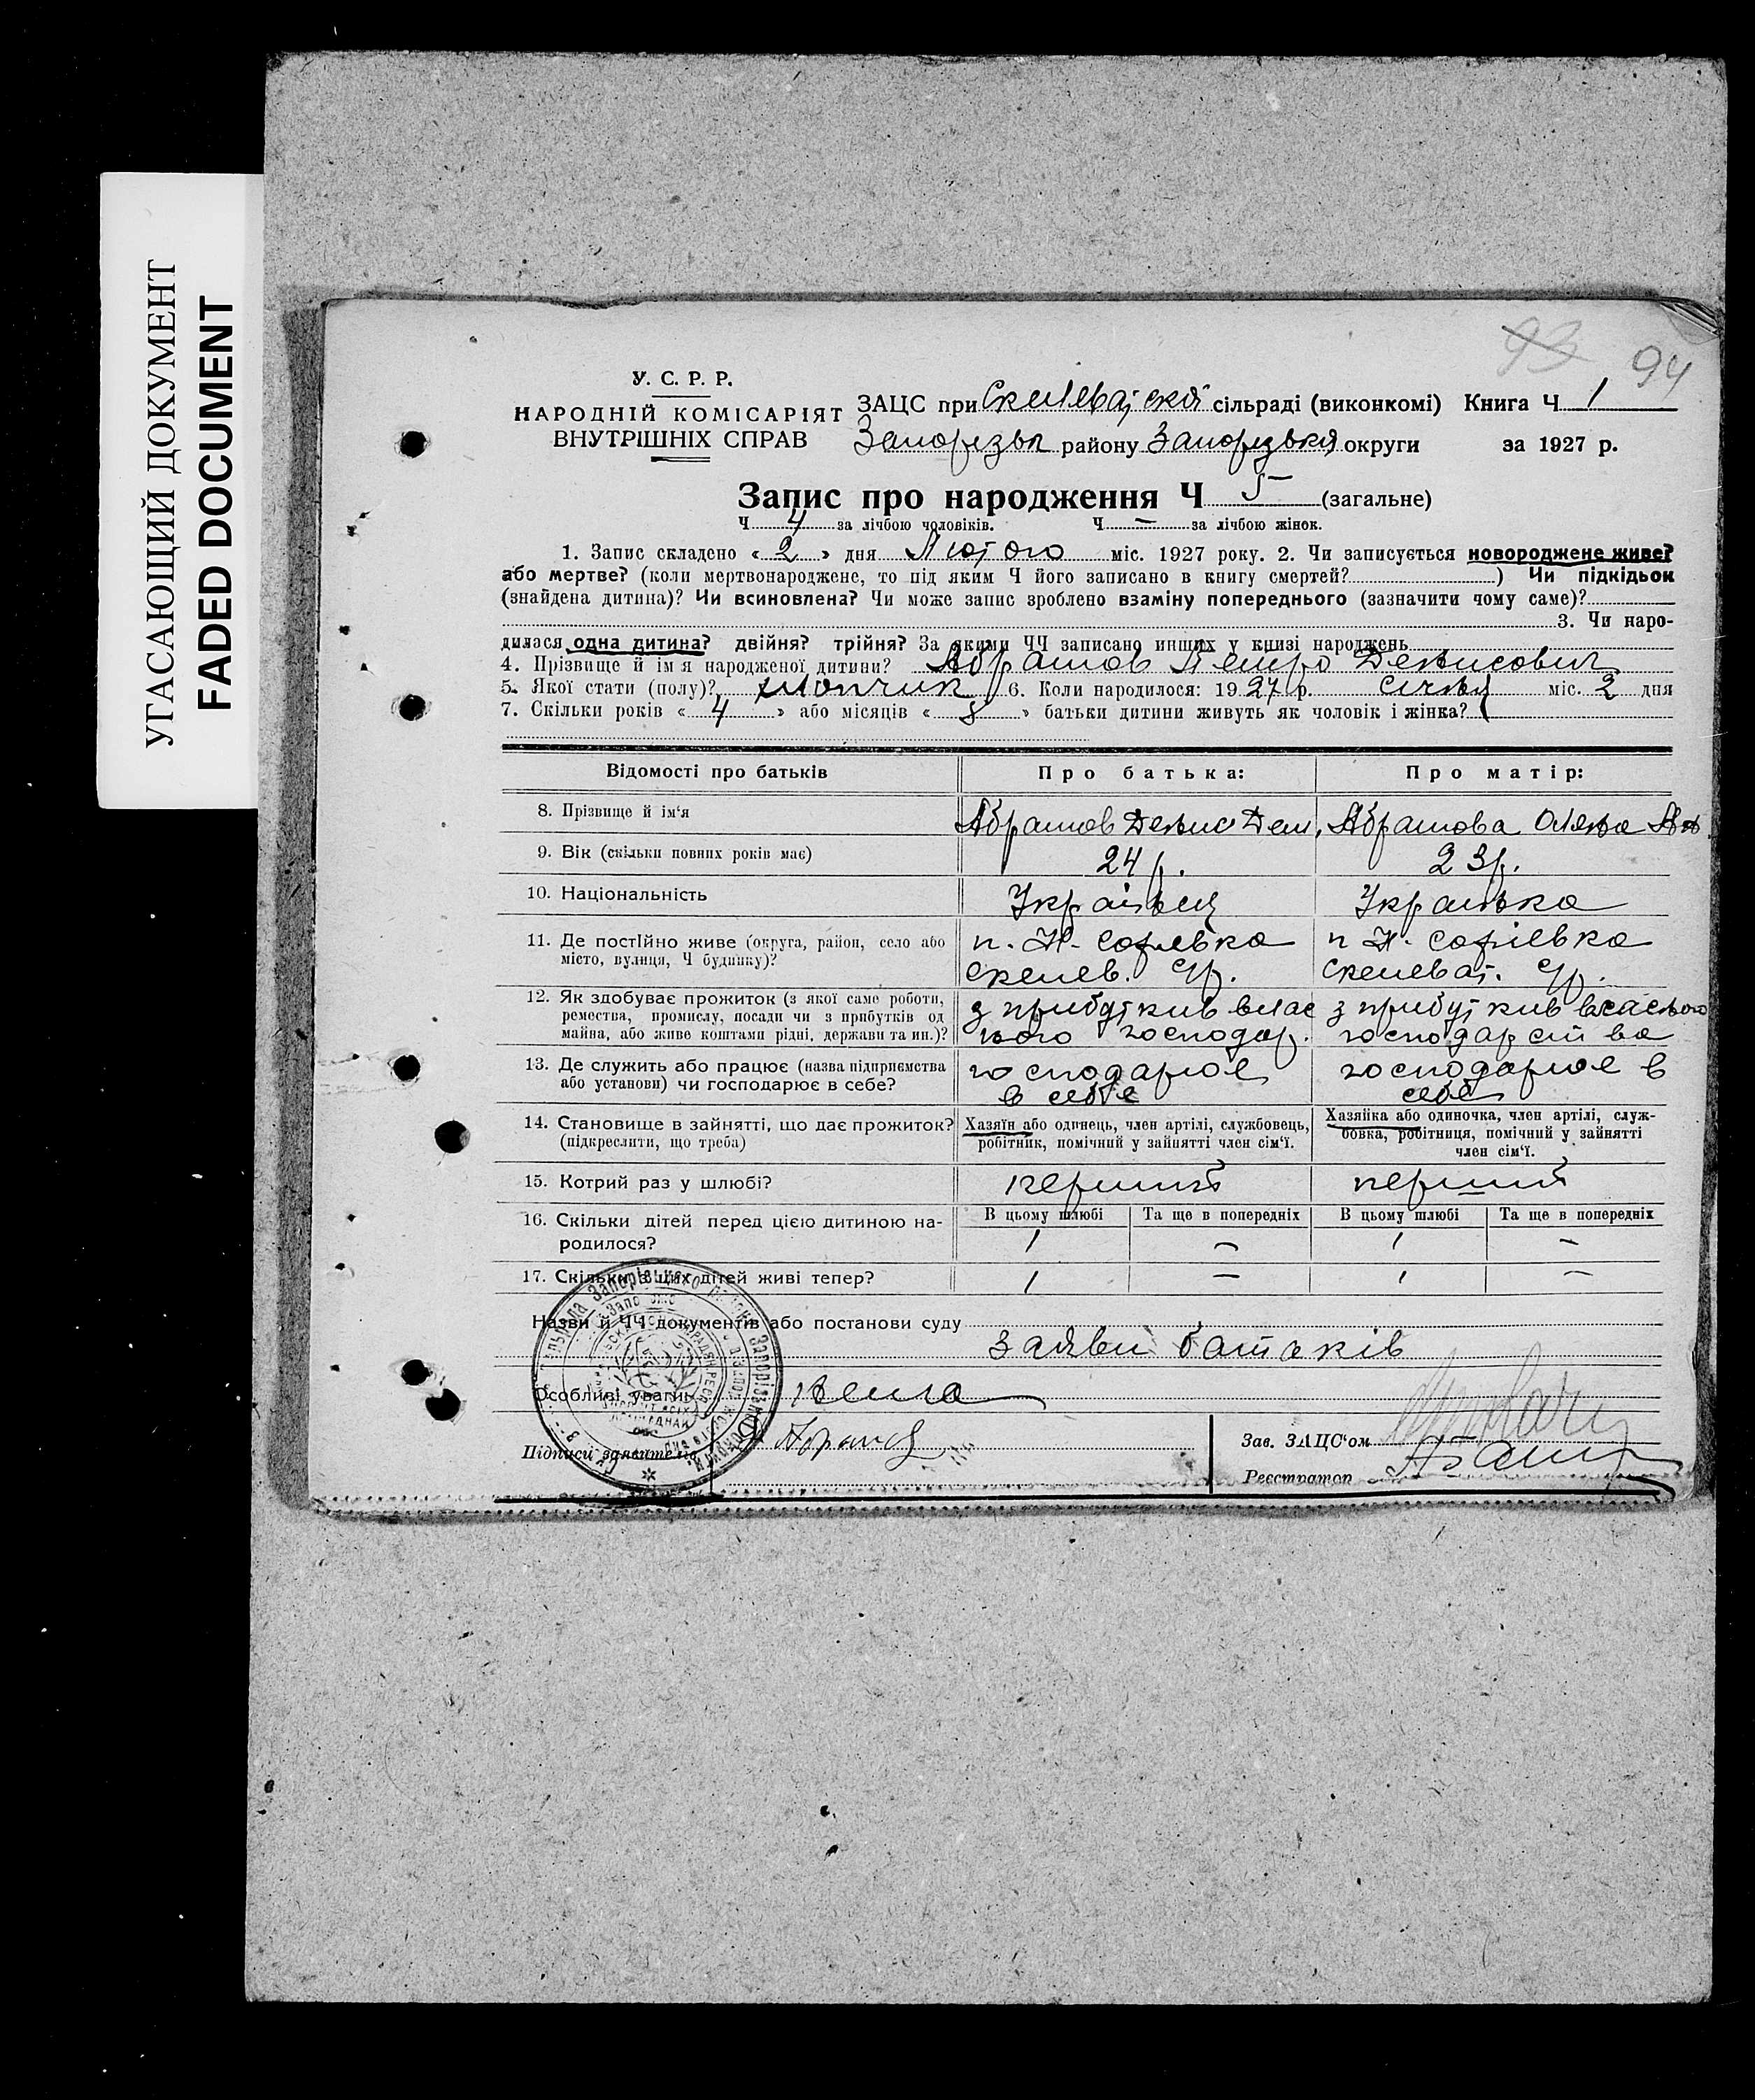 УГАСАЮЩИЙ ДОКУМЕНТ
FADED DOCUMENT
93 94
У. С. Р. Р.
НАРОДНІЙ КОМІСАРІЯТ
ВНУТРІШНІХ СПРАВ
ЗАЦС при Скелеватской сільраді (виконкомі) Книга Ч 1
Запорізьк району Запорізької округи за 1927 р.
Запис про народження Ч 5 (загальне)
Ч 4 за лічбою чоловіків. Ч — за лічбою жінок.
1. Запис складено «2» дня Лютого міс. 1927 року. 2. Чи записується новороджене живе?
або мертве? (коли мертвонароджене, то під яким Ч його записано в книгу смертей? ) Чи підкідьок
(знайдена дитина)? Чи всиновлена? Чи може запис зроблено взаміну попереднього (зазначити чому саме)?
3. Чи наро-
дилася одна дитина? двійня? трійня? За якими ЧЧ записано инших у книзі народжень
4. Прізвище й ім'я народженої дитини? Абрамов Петро Денисович
5. Якої стати (полу)? хлопчик 6. Коли народилося: 1927 р. січня міс. 2 дня
7. Скільки років «4» або місяців «8» батьки дитини живуть як чоловік і жінка?
Відомості про батьків Про батька: Про матір:
8. Прізвище й ім'я Абрамов Денис Дем. Абрамова Олена
9. Вік (скільки повних років має) 24 р. 23 р.
10. Національність Українец Українка
11. Де постійно живе (округа, район, село або місто, вулиця, Ч будинку)? п. Н. Софіевка п Н. Софіевка
Скелев. С/р. Скелеват. С/р.
12. Як здобуває прожиток (з якої саме роботи, ремества, промислу, посади чи з прибутків од майна, або живе коштами рідні, держави та ин.)? з прибутків влас з прибутків власного
ного господар. господарства
13. Де служить або працює (назва підприємства або установи) чи господарює в себе? господарює господарює в
в себе себе
14. Становище в зайнятті, що дає прожиток? (підкреслити, що треба) Хазяїн або одинець, член артілі, службовець, робітник, помічний у зайнятті член сім'ї. Хазяйка або одиночка, член артілі, служ-
бовка, робітниця, помічний у зайнятті
член сім'ї.
15. Котрий раз у шлюбі? перший перший
16. Скільки дітей перед цією дитиною на- В цьому шлюбі Та ще в попередніх В цьому шлюбі Та ще в попередніх
родилося? 1 — 1 —
17. Скільки з цих дітей живі тепер? 1 — 1 —
Назви й ЧЧ документів або постанови суду
заяви батьків
Особливі уваги: нема
Підписи заявителів
Зав. ЗАЦС'ом
Реєстратор